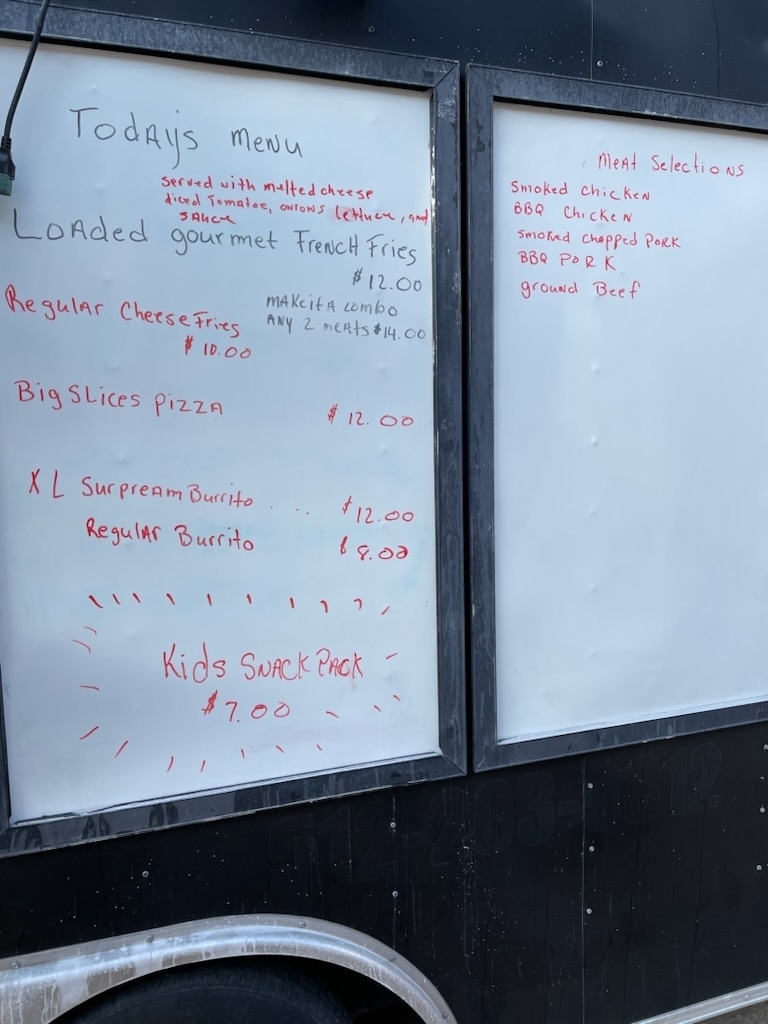 Today's menu
served with melted cheese
diced Tomatoe, onions lettuce, and
sauce
Loaded gourmet French Fries
$12.00
make it a combo
Any 2 meats $14.00
Regular Cheese Fries
$10.00
Big Slices Pizza $12.00
XL Surpream Burrito .... $12.00
Regular Burrito $8.00
Kids Snack Pack
$7.00
Meat Selections
Smoked Chicken
BBQ Chicken
Smoked Chopped Pork
BBQ Pork
ground Beef